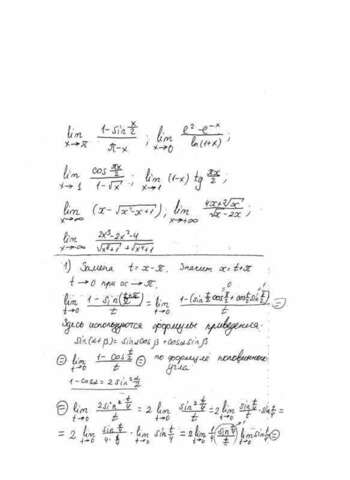 lim x→π (1-sin x/2)/(π-x) ; lim x→0 (e^2-e^-x)/ln(1+x) ;
lim x→1 (cos πx/2)/(1-√x) ; lim x→1 (1-x) tg πx/2 ;
lim x→∞ (x-√(x²-x+1)) ; lim x→+∞ (4x+2√x)/(√x-2x) ;
lim x→∞ (2x³-2x²-4)/(√(x⁶+1)+√(x⁴+1))
1) Замена t=x-π. Значит x=t+π
t→0 при x→π.
lim t→0 (1-sin(t+π)/2)/t = lim t→0 (1-(sin t/2 cos π/2+cos t/2 sin π/2))/t =
Здесь используются формулы приведения
sin(α+β)=sinα cosβ+cosα sinβ
= lim t→0 (1-cos t/2)/t = по формуле половинного угла
1-cosα=2sin² α/2
= lim t→0 (2sin² t/4)/t = 2 lim t→0 (sin² t/4)/t = 2 lim t→0 (sin t/4)/t · sin t/4 =
= 2 lim t→0 (sin t/4)/(4·t/4) · lim t→0 sin t/4 = 2 lim t→0 1/4 (sin t/4)/(t/4) lim t→0 sin t/4 =